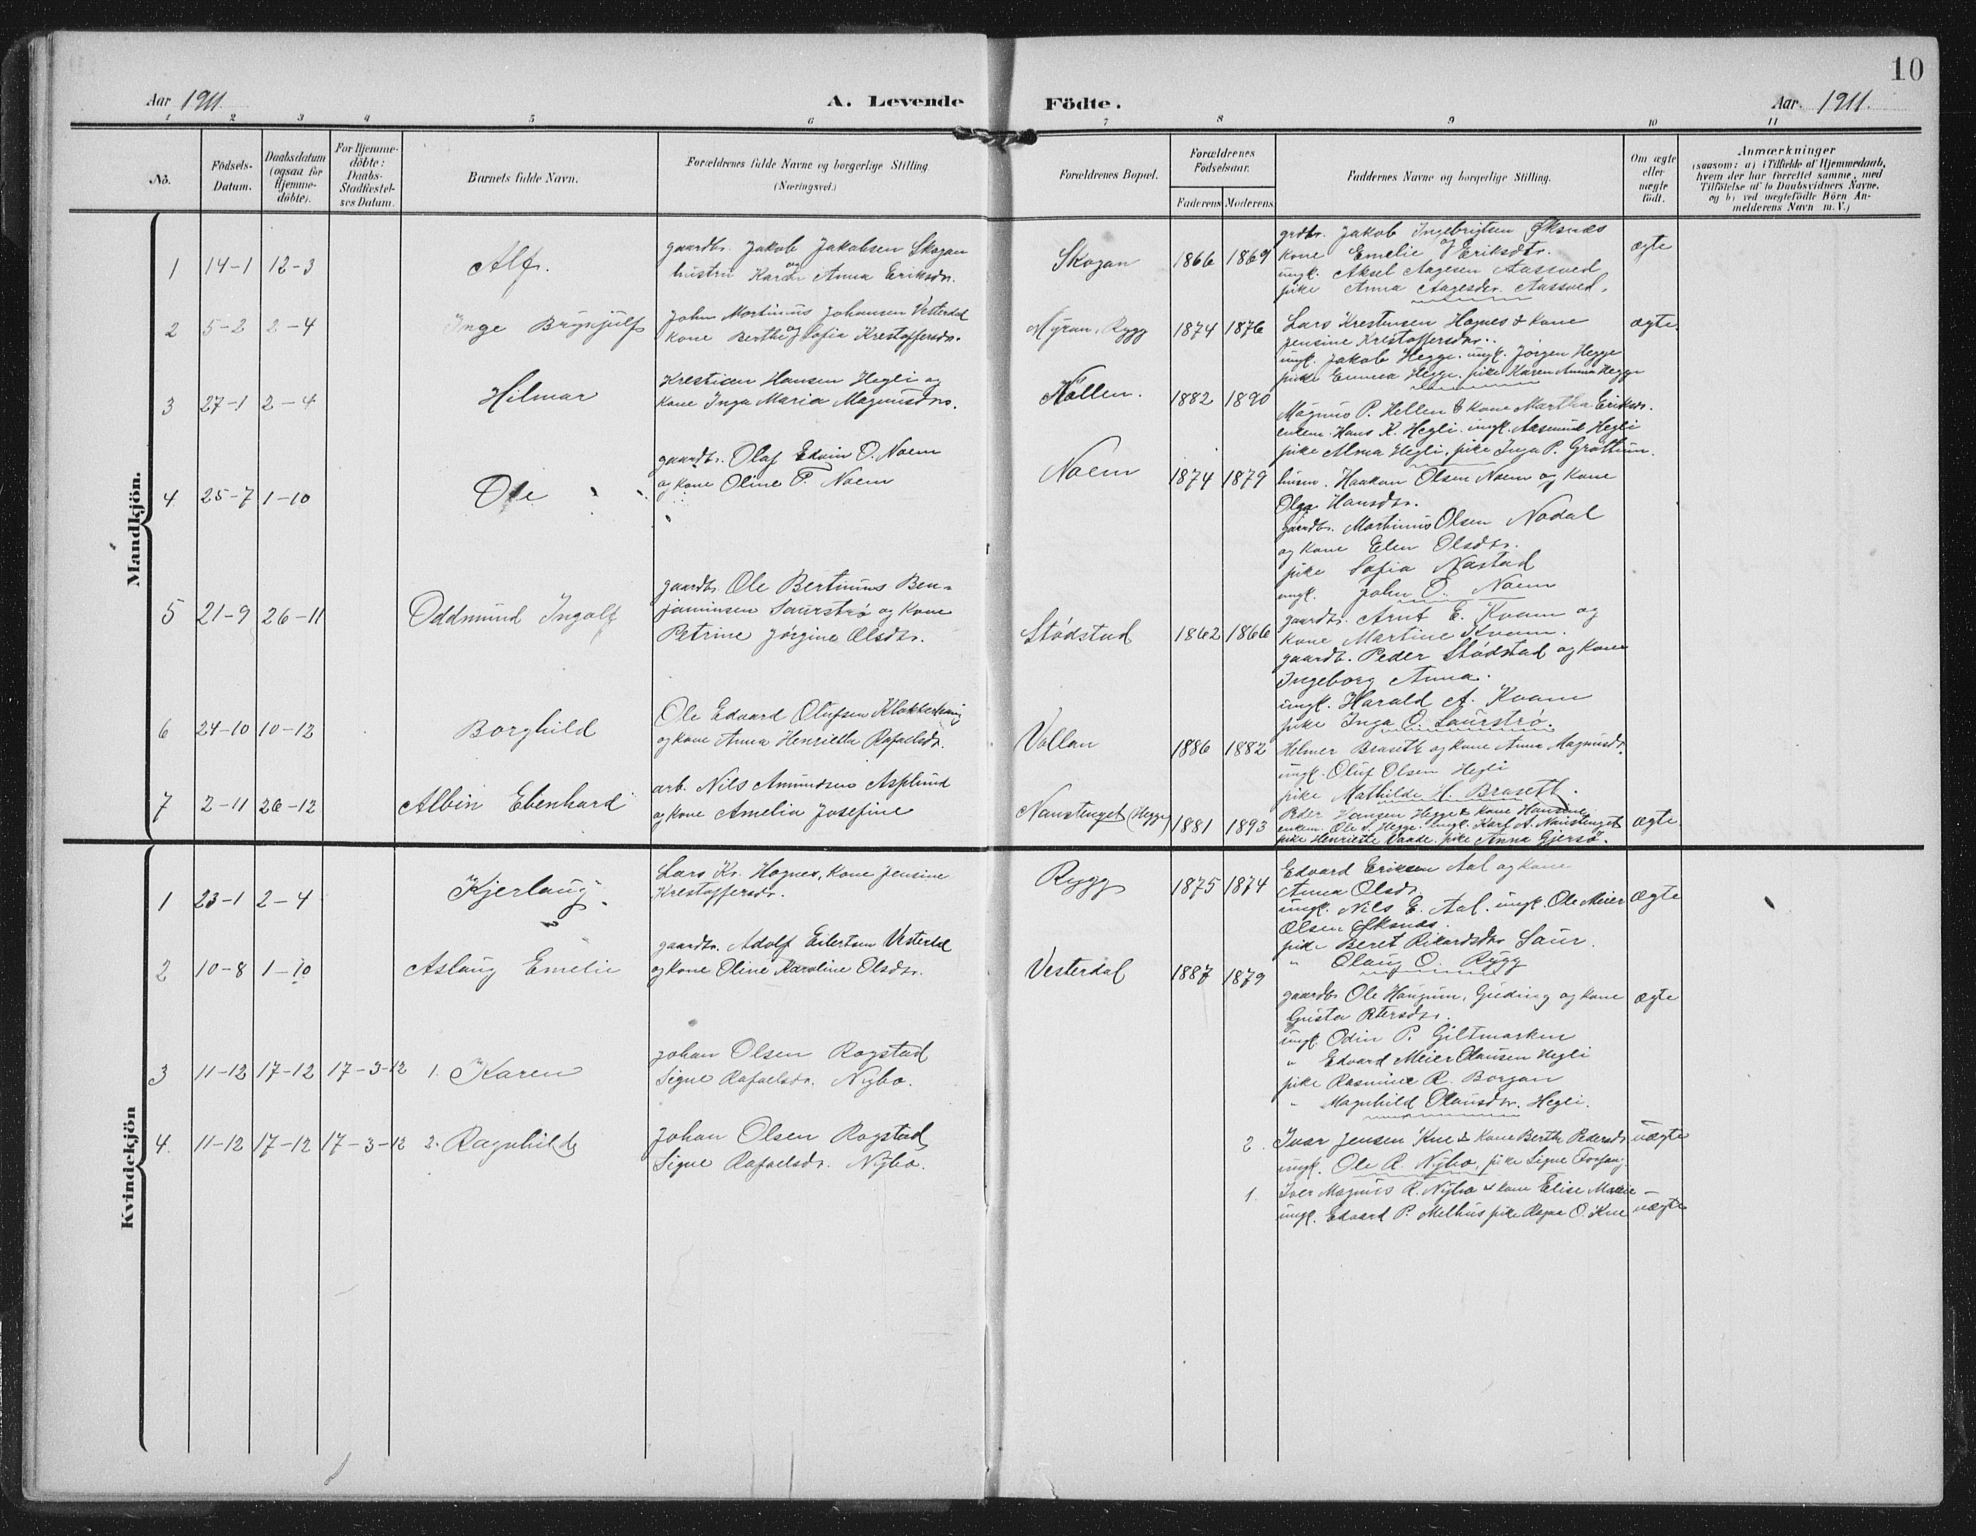 10
Aar 1911.
A. Levende
Födte.
Aar. 1911.
1 2 3 4 5 6 7 8 9 10 11
No.
Födsels-
Datum.
Daabsdatum
(ogsaa for
Hjemme-
döbte).
For Hjemme-
döbte:
Daabs-
Stadfæstel-
ses Datum.
Barnets fulde Navn.
Forældrenes fulde Navne og borgerlige Stilling.
(Næringsvei.)
Forældrenes Bopæl.
Forældrenes
Födselsaar.
Faderens Moderens
Faddernes Navne og borgerlige Stilling.
Om ægte
eller
uægte
födt.
Anmærkninger
(saasom: a) i Tilfælde af Hjemmedaab,
hvem der har forrettet samme, med
Tilföielse af to Daabsvidners Navne,
og b) ved uægtefödte Börn An-
melderens Navn m. V.)
Mandkjön.
1 14-1 12-3 Alf.
gaardbr. Jakob Jakobsen Skogan
hustru Karen Anna Eriksdr.
og
Skogan 1866 1869
grdbr. Jakob Ingebrigtsen Øksnes
og
kone Emelie Eriksdtr.
ungk. Aksel Aagesen Aassved
pike Anna Aagesdr. Aassved.
ægte
2 5-2 2-4 Inge Brynjulf
John Martinius Johansen Vesterdal
og
kone Berthe Sofia Krestoffersdr.
Myran, Rygg 1874 1876
Lars Krestensen Hognes & kone
Jensine Krestoffersdr.
ungk. Jakob Hegge. ungk. Jörgen Hegge
pike Emma Hegge. pike Karen Anna Hegge
ægte
3 27-1 2-4 Hilmar
Krestian Hansen Hegli og
kone Inga Maria Magnusdr.
Köllen. 1882 1890
Magnus P. Hellem & kone Martha Eriksdr.
enkem. Hans K. Hegli. ungk. Aasmund Hegli
pike Alma Hegli. pike Inga P. Gröttum.
4 25-7 1-10 Ole
gaardbr. Olaf Edvin O. Noem
og kone Oline P. Noem
Noem 1874 1879
husm. Haakon Olsen Noem og kone
Olga Hansdtr.
gaardbr. Martinus Olsen Nodal
og kone Elen Olsdtr.
pike Sofia Nastad
ungk. John O. Noem
5 21-9 26-11 Oddmund Ingolf
gaardbr. Ole Bertinius Ben-
jaminsen Saurströ og kone
Petrine Jörgine Olsdtr.
Stödstad 1862 1866
gaardbr. Arnt E. Kvam og
kone Martine Kvam.
gaardb. Peder Stödstad og kone
Ingeborg Anna.
ungk. Harald A. Kvam
pike Inga O. Saurströ.
6 24-10 10-12 Borghild
Ole Edvard Olufsen Klokkerhaug
og kone Anna Henriette Rafaelsdr.
Vollan 1886 1882
Helmer Braseth og kone Anna Magnusdr.
ungk. Oluf Olsen Hegli
pike Mathilde H. Brasett.
7 2-11 26-12 Albin Ebenhard
arb. Nils Amundsen Asplund
og kone Amelia Josefine
Naustenget (Hegge) 1881 1893
Peder Hansen Hegge & kone Hansine
enkem. Ole J. Hegge. ungk. Karl A. Naustenget
pike Henriette Vaade. pike Anna Gjersö.
ægte
Kvindekjön
1 23-1 2-4 Kjerlaug
Lars Kr. Hognes, kone Jensine
Krestoffersdr.
Rygg 1875 1874
Edvard Eriksen Aal og kone
Anna Olsdr.
ungk. Nils E. Aal. ungk. Ole Meier
Olsen Øksnes.
pike Beret Rikardsdr Saur.
" Olaug O. Rygg
ægte
2 10-8 1-10 Aslaug Emelie
gaardbr. Adolf Eilertsen Vesterdal
og kone Oline Karoline Olsdtr.
Vesterdal 1887 1879
gaardbr Ole Haugum, Gjeding og kone
Gusta Petersdtr.
ungk. Odin P. Giltmarken
" Edvard Meier Olausen Hegli
pike Rasmine R. Borgan
" Magnhild Olausdtr. Hegli.
ægte
3 11-12 17-12 17-3-12 1. Karen
Johan Olsen Rogstad
Signe Rafaelsdr. Nybo.
2. Ivar Jensen Kne & kone Berthe Pedersdr
ungk. Ole R. Nybo, pike Signe Forfang.
uægte
4. 11-12 17-12 17-3-12 2. Ragnhild
Johan Olsen Rogstad
Signe Rafaelsdr. Nybo.
1. Iver Magnus R. Nybo & kone Elise Marie
ungk. Edvard P. Melhus pike Ragna O. Kne
uægte